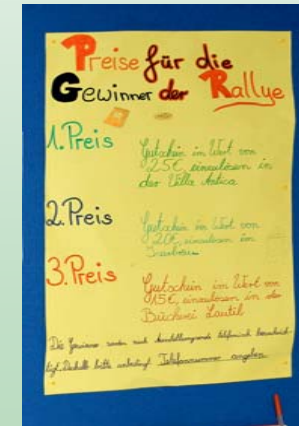 Preise für die
Gewinner der Rallye
1. Preis
Gutschein im Wert von
25€, einzulösen in
der Villa Antica
2. Preis
Gutschein im Wert von
20€, einzulösen im
3. Preis
Gutschein im Wert von
15€, einzulösen in der
Bücherei Lautil
Die Gewinner werden nach Ausstellungsende telefonisch benachrich-
tigt. Deshalb bitte unbedingt Telefonnummer angeben.